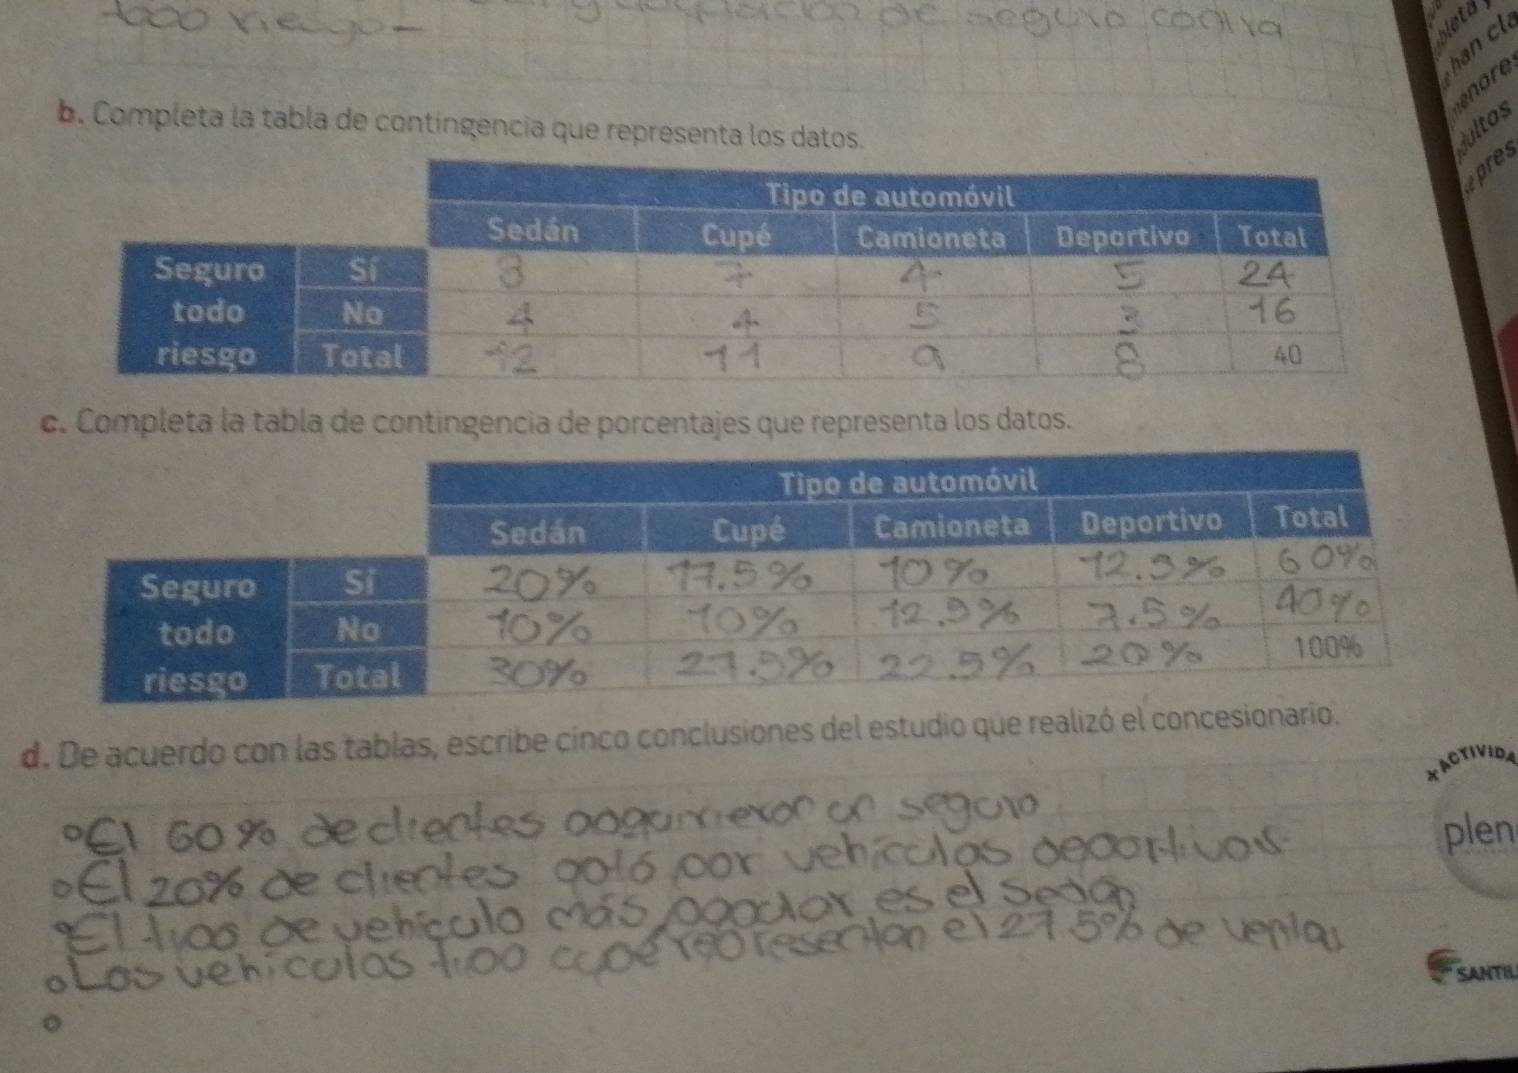 todo riesgo-
de seguro
b. Completa la tabla de contingencia que representa los datos.
Tipo de automóvil
Sedán Cupé Camioneta Deportivo Total
Seguro todo riesgo
Sí 3 7 4 5 24
No 4 4 5 3 16
Total 12 11 9 8 40
c. Completa la tabla de contingencia de porcentajes que representa los datos.
Tipo de automóvil
Sedán Cupé Camioneta Deportivo Total
Seguro todo riesgo
Sí 20% 17.5% 10% 12.5% 60%
No 10% 10% 12.5% 7.5% 40%
Total 30% 27.5% 22.5% 20% 100%
d. De acuerdo con las tablas, escribe cinco conclusiones del estudio que realizó el concesionario.
El 60% de clientes seguro
El 20% de clientes optó por vehículos deportivos
El tipo de vehículo más popular es el Sedán
Los vehículos tipo cupé representan el 27.5% de ventas
han cla
menores
adultos
pres
ACTIVIDA
plen
SANTIL